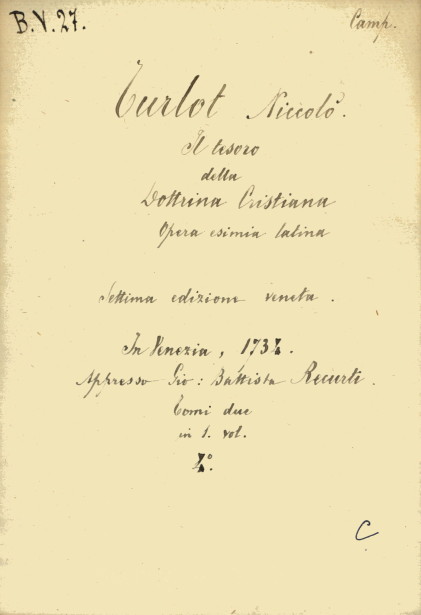 B.V.27.
Camp.
Turlot Niccolò.
Il tesoro
della
Dottrina Cristiana
Opera esimia latina
Settima edizione veneta.
In Venezia, 1734.
Appresso Gio: Battista Recurti.
Tomi due
in 1. vol.
4°.
C